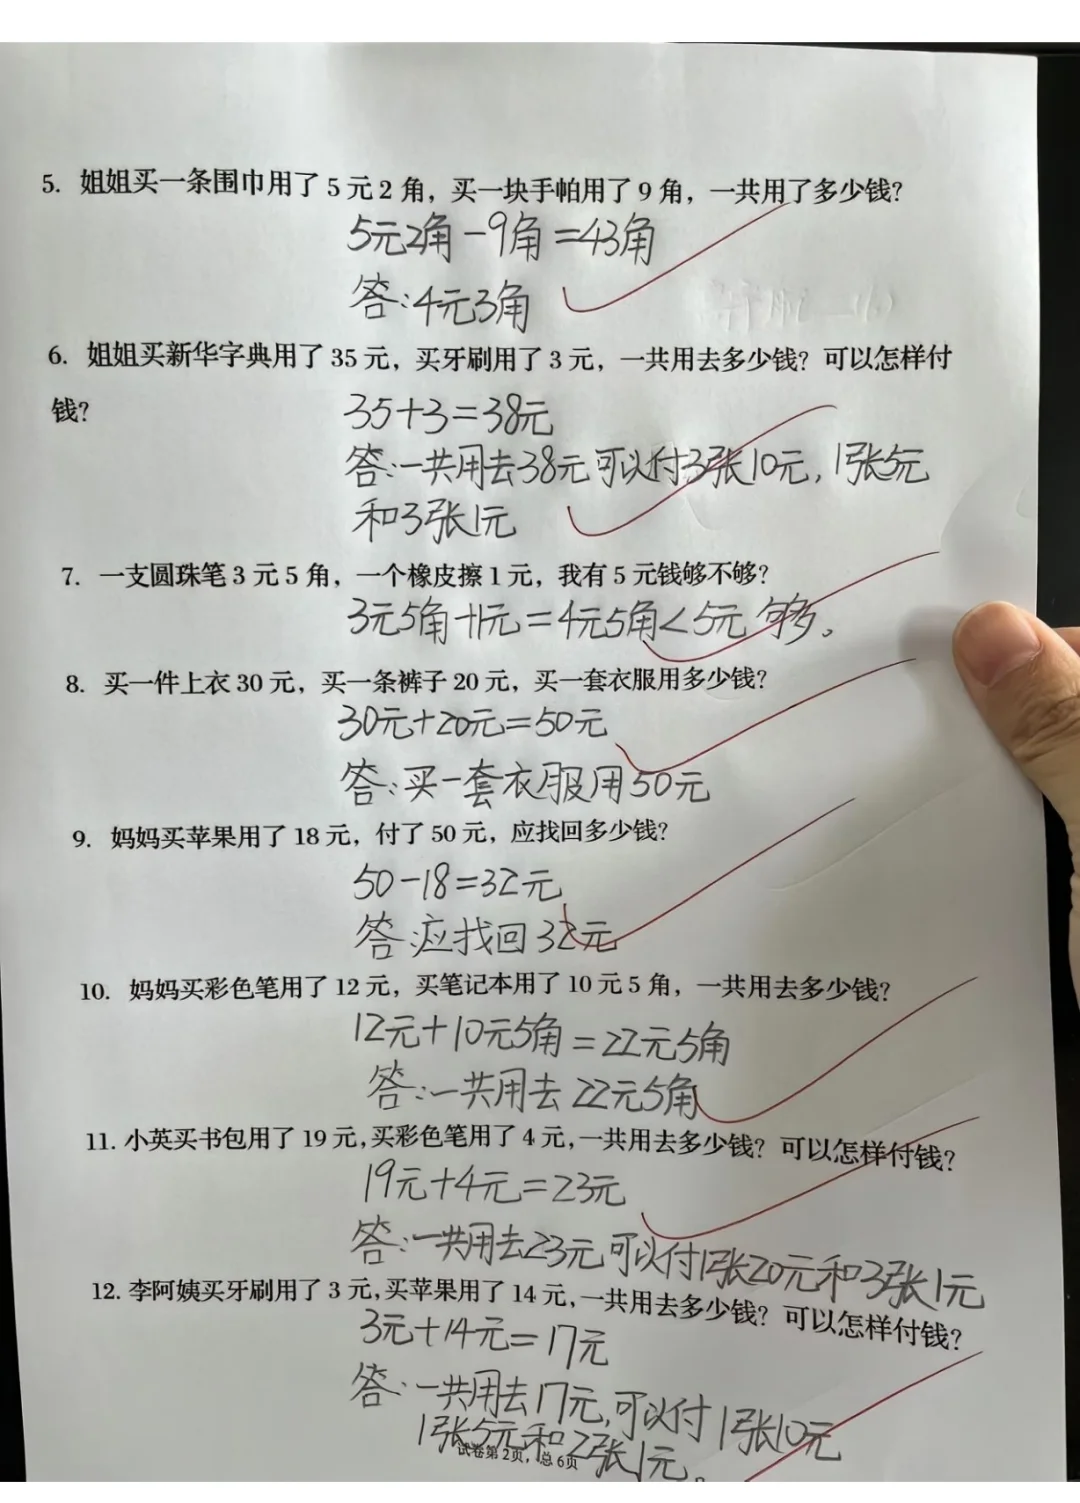 5. 姐姐买一条围巾用了 5 元 2 角，买一块手帕用了 9 角，一共用了多少钱？
5元2角-9角=43角
答:4元3角
6. 姐姐买新华字典用了 35 元，买牙刷用了 3 元，一共用去多少钱？可以怎样付
钱？
35+3=38元
答:一共用去38元可以付3张10元,1张5元
和3张1元
7. 一支圆珠笔 3 元 5 角，一个橡皮擦 1 元，我有 5 元钱够不够？
3元5角+1元=4元5角<5元 够。
8. 买一件上衣 30 元，买一条裤子 20 元，买一套衣服用多少钱？
30元+20元=50元
答:买一套衣服用50元
9. 妈妈买苹果用了 18 元，付了 50 元，应找回多少钱？
50-18=32元
答:应找回32元
10. 妈妈买彩色笔用了 12 元，买笔记本用了 10 元 5 角，一共用去多少钱？
12元+10元5角=22元5角
答:一共用去22元5角
11. 小英买书包用了 19 元,买彩色笔用了 4 元,一共用去多少钱？可以怎样付钱？
19元+4元=23元
答:一共用去23元,可以付1张20元和3张1元
12. 李阿姨买牙刷用了 3 元,买苹果用了 14 元,一共用去多少钱？可以怎样付钱？
3元+14元=17元
答:一共用去17元,可以付1张10元
1张5元和2张1元。
试卷第 2页，总 6页